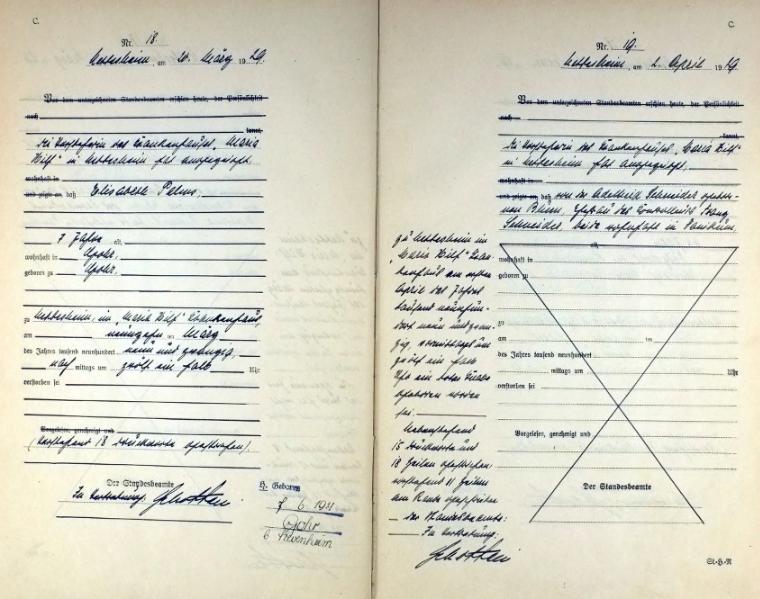 C.
Nr. 18.
Nettesheim, am 20. März 1929.
Vor dem unterzeichneten Standesbeamten erschien heute, der Persönlichkeit
nach
kannt,
Die Vorsteherin des Krankenhauses "Maria
Hilf" in Nettesheim hat angezeigt,
wohnhaft in
und zeigte an, daß Elisabeth
7 Jahre alt,
wohnhaft in Gohr,
geboren zu Gohr,
zu Nettesheim, im "Maria Hilf" Krankenhaus,
am neunzehnten März
des Jahres tausend neunhundert neun und zwanzig
nach mittags um zwölf ein halb Uhr
verstorben sei
Vorgelesen, genehmigt und
(Vorstehend 18 Druckworte gestrichen).
Der Standesbeamte
In Vertretung:
H. Geboren
7 6 1921
Gohr
C.
Nr. 19.
Nettesheim, am 2. April 1929.
Vor dem unterzeichneten Standesbeamten erschien heute, der Persönlichkeit
nach
kannt,
Die Vorsteherin des Krankenhauses "Maria Hilf"
in Nettesheim hat angezeigt,
wohnhaft in
und zeigte an, daß von der Adelheid Schneider gebore-
nen Ehefrau des Franz
Schneider, beide wohnhaft in
alt,
wohnhaft in
geboren zu
zu
am ten
des Jahres tausend neunhundert
mittags um Uhr
verstorben sei
Vorgelesen, genehmigt und
Der Standesbeamte
zu Nettesheim im
"Maria Hilf" Kran-
kenhaus am ersten
April des Jahres
tausend neunhun-
dert neun und zwan-
zig, vormittags um
zwölf ein halb
Uhr ein totes Kind
geboren worden
sei.
Nebenstehend
15 Druckworte und
18 Zeilen gestrichen
vorstehend 11 Zeilen
am Rande
der Standesbeamte:
In Vertretung:
St-H-A